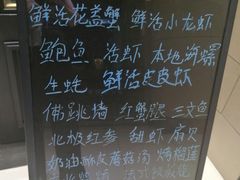 鲜活花盖蟹 鲜活小龙虾
鲍鱼 活虾 本地海螺
生蚝 鲜活皮皮虾
佛跳墙 红蟹腿 三文鱼
北极红参 甜虾 扇贝
奶油酥皮蘑菇汤 焗榴莲